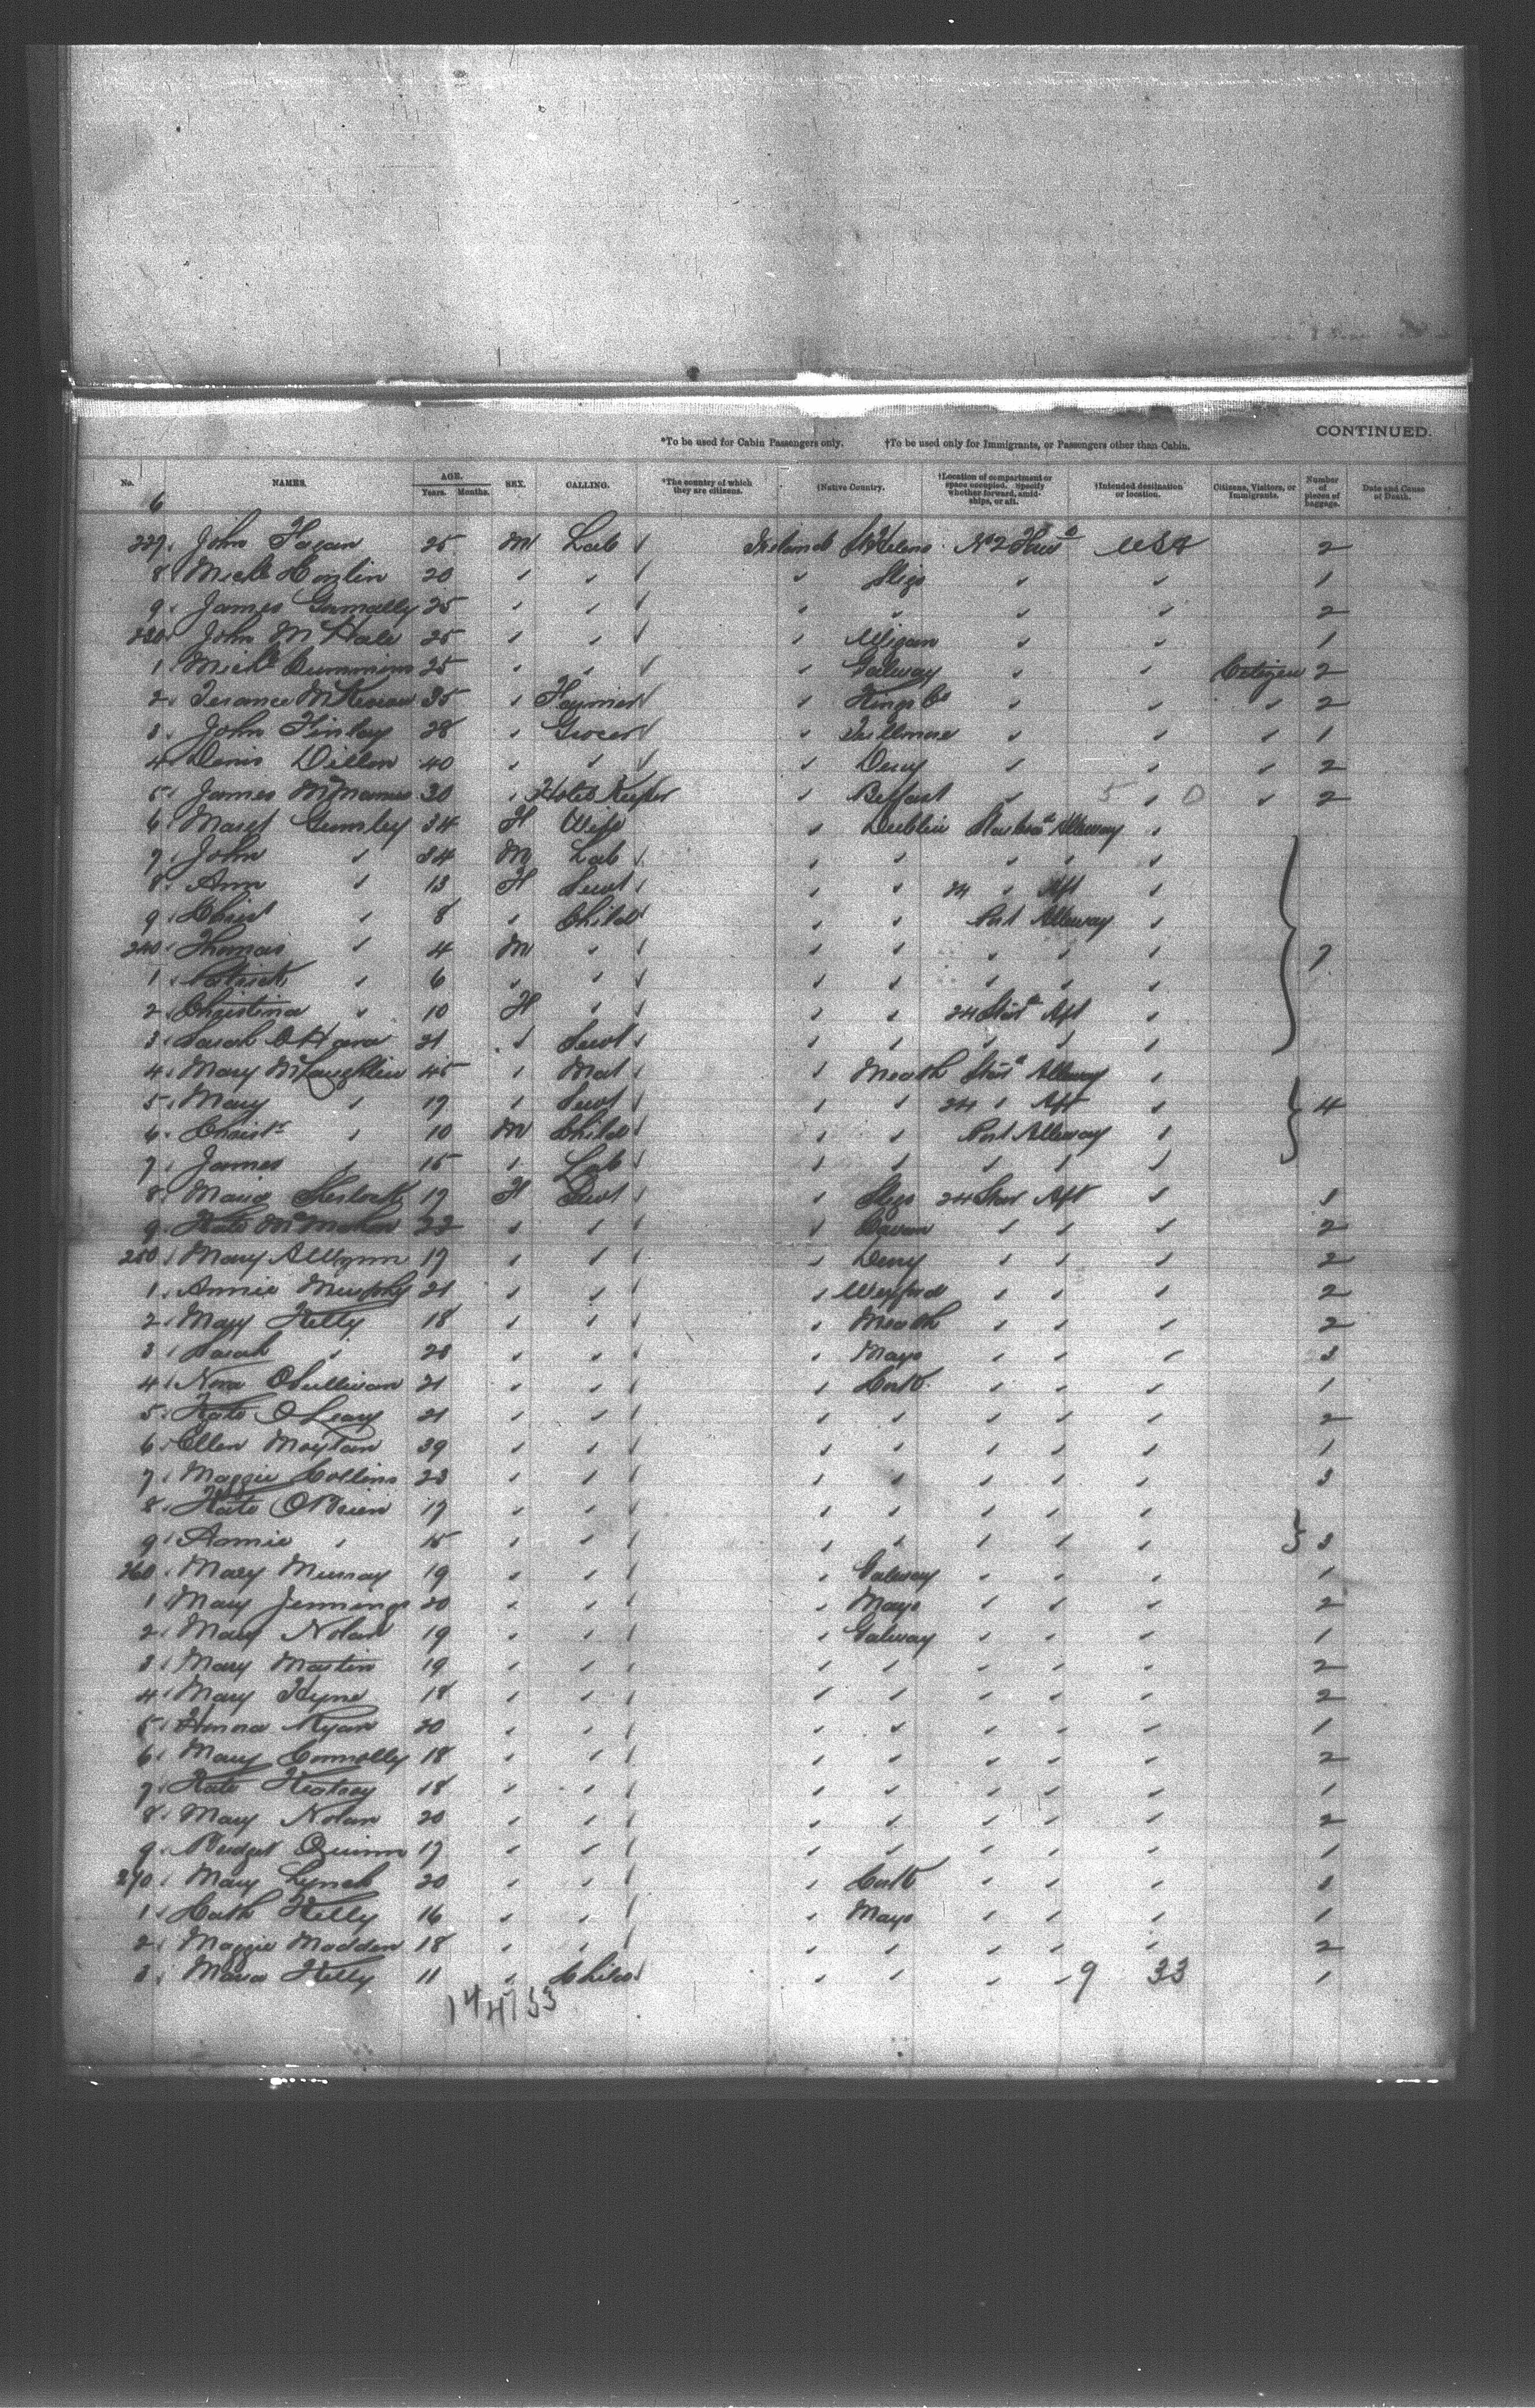 CONTINUED.
*To be used for Cabin Passengers only. †To be used only for Immigrants, or Passengers other than Cabin.
No. NAMES. AGE. Years. Months. SEX. CALLING. *The country of which they are citizens. †Native Country. †Location of compartment or space occupied. Specify whether forward, amidships, or aft. †Intended destination or location. Citizens, Visitors, or Immigrants. Number of pieces of baggage. Date and Cause of Death.
6
227 John Fagan 25 M Lab Ireland St Helens No 2 USA 2
8 Mich 20 " " " Sligo " " 1
9 James 25 " " " " " " 2
230 John McHale 25 " " " Wigan " " 1
1 Mich Cummins 25 " " " Galway " " Citizen 2
2 35 " Farmer " Kings Co " " " 2
3 John Finlay 28 " Grocer " " " " 1
4 Denis Dillon 40 " " " Derry " " " 2
5 James McManus 30 " Hotel Keeper " Belfast " 5 " 0 " 2
6 34 F Wife " Dublin Alleway "
7 John " 34 M Lab " " " " "
8 Ann " 13 F Servt " " 24 " Aft "
9 Christ " 8 " Child " " Port Alleway "
240 Thomas " 4 M " " " " " " 7
1 Patrick " 6 " " " " " " "
2 Christina " 10 F " " " 24 Star Aft "
3 Sarah O'Hara 21 " Servt " " " " "
4 Mary McLaughlin 45 " Mat " Meath Star Alleway "
5 Mary " 17 " Servt " " 24 " Aft " 4
6 Christ " 10 M Child " " Port Alleway "
7 James " 15 " Lab " " " " "
8 Maria Sherlock 19 F Servt " Sligo 24 Star Aft " 1
9 Kate McMahon 22 " " " Cavan " " " 2
250 Mary 19 " " " Derry " " " 2
1 Annie Murphy 21 " " " Wexford " " " 2
2 Mary Kelly 18 " " " Meath " " " 2
3 Sarah " 20 " " " Mayo " " " 3
4 Nora O'Sullivan 21 " " " Cork " " " 1
5 Kate O'Leary 21 " " " " " " " 2
6 Ellen 39 " " " " " " " 1
7 Maggie Collins 23 " " " " " " " 3
8 Kate O'Brien 17 " " " " " " "
9 Annie " 15 " " " " " " " 3
260 Mary Murray 19 " " " Galway " " " 1
1 Mary Jennings 20 " " " Mayo " " " 2
2 Mary Nolan 19 " " " Galway " " " 1
3 Mary Martin 19 " " " " " " " 2
4 Mary Hyne 18 " " " " " " " 2
5 Honora Ryan 20 " " " " " " " 1
6 Mary Connolly 18 " " " " " " " 2
7 Kate 18 " " " " " " " 1
8 Mary Nolan 20 " " " " " " " 2
9 Bridget Quinn 17 " " " " " " " 1
270 Mary Lynch 20 " " " Cork " " " 1
1 Cath Kelly 16 " " " Mayo " " " 1
2 Maggie Madden 18 " " " " " " " 2
3 Maria Kelly 11 " Child " " " " 9 33 1